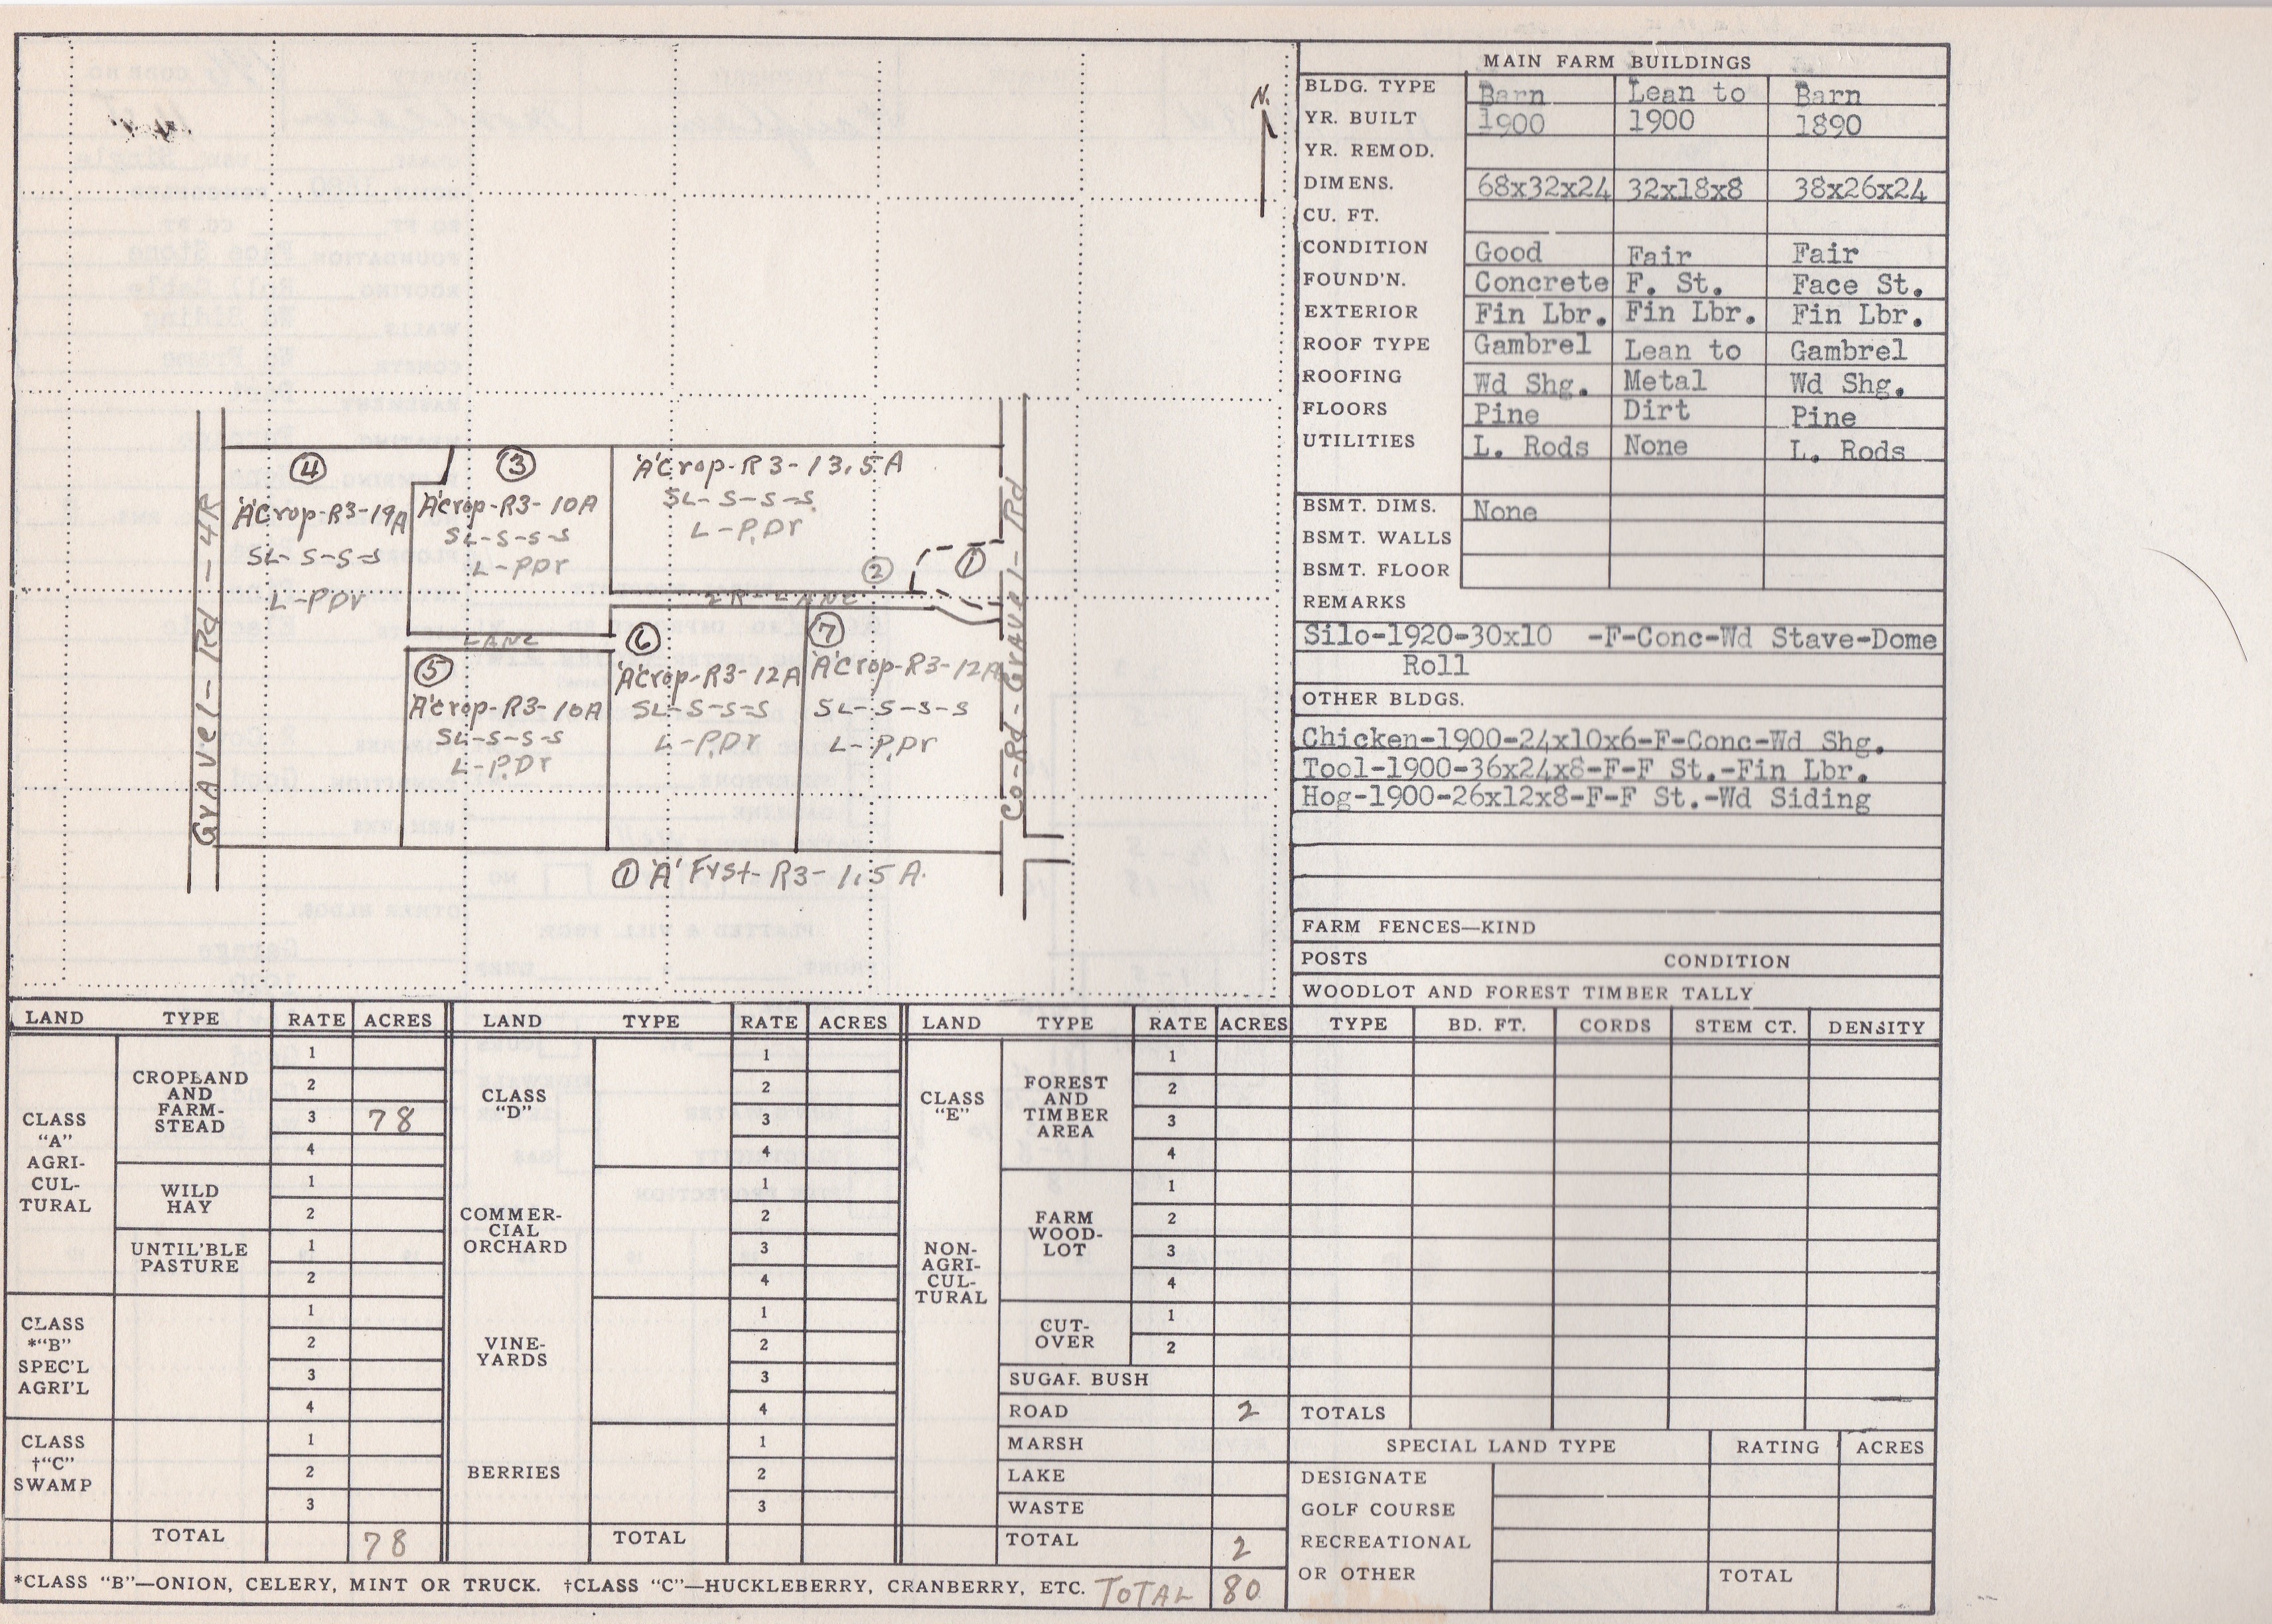 N.
④
③
'A' Crop-R3-13.5A
SL-S-S-S
L-P.Dr
'A' Crop-R3-19A
SL-S-S-S
L-PDr
'A' Crop-R3-10A
SL-S-S-S
L-PDr
②
①
2R-LANE
LANE
⑤
⑥
⑦
'A' Crop-R3-10A
SL-S-S-S
L-P.Dr
'A' Crop-R3-12A
SL-S-S-S
L-P.Dr
'A' Crop-R3-12A
SL-S-S-S
L-P.Dr
GrAvel-Rd-4R
Co-Rd-GrAvel-Rd
① 'A' Frst-R3-1.5A.
MAIN FARM BUILDINGS
BLDG. TYPE Barn Lean to Barn
YR. BUILT 1900 1900 1890
YR. REMOD.
DIMENS. 68x32x24 32x18x8 38x26x24
CU. FT.
CONDITION Good Fair Fair
FOUND'N. Concrete F. St. Face St.
EXTERIOR Fin Lbr. Fin Lbr. Fin Lbr.
ROOF TYPE Gambrel Lean to Gambrel
ROOFING Wd Shg. Metal Wd Shg.
FLOORS Pine Dirt Pine
UTILITIES L. Rods None L. Rods
BSMT. DIMS. None
BSMT. WALLS
BSMT. FLOOR
REMARKS
Silo-1920-30x10 -F-Conc-Wd Stave-Dome
Roll
OTHER BLDGS.
Chicken-1900-24x10x6-F-Conc-Wd Shg.
Tool-1900-36x24x8-F-F St.-Fin Lbr.
Hog-1900-26x12x8-F-F St.-Wd Siding
FARM FENCES—KIND
POSTS CONDITION
WOODLOT AND FOREST TIMBER TALLY
TYPE BD. FT. CORDS STEM CT. DENSITY
TOTALS
SPECIAL LAND TYPE RATING ACRES
DESIGNATE
GOLF COURSE
RECREATIONAL
OR OTHER TOTAL
LAND TYPE RATE ACRES
CLASS
"A"
AGRI-
CUL-
TURAL
CROPLAND
AND
FARM-
STEAD
1
2
3 78
4
WILD
HAY
1
2
UNTIL'BLE
PASTURE
1
2
CLASS
*"B"
SPEC'L
AGRI'L
1
2
3
4
CLASS
†"C"
SWAMP
1
2
3
TOTAL 78
LAND TYPE RATE ACRES
CLASS
"D"
1
2
3
4
COMMER-
CIAL
ORCHARD
1
2
3
4
VINE-
YARDS
1
2
3
4
BERRIES
1
2
3
TOTAL
LAND TYPE RATE ACRES
CLASS
"E"
NON-
AGRI-
CUL-
TURAL
FOREST
AND
TIMBER
AREA
1
2
3
4
FARM
WOOD-
LOT
1
2
3
4
CUT-
OVER
1
2
SUGAR BUSH
ROAD 2
MARSH
LAKE
WASTE
TOTAL 2
*CLASS "B"—ONION, CELERY, MINT OR TRUCK. †CLASS "C"—HUCKLEBERRY, CRANBERRY, ETC. TOTAL 80